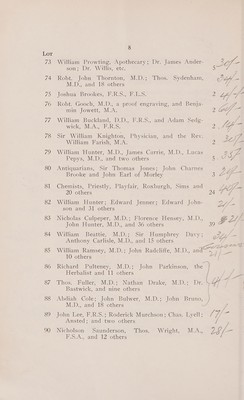 8
Lot
73 William Prowting, Apothecary; Dr. James Ander-
son; Dr. Willis, etc.
74 Robt. John Thornton, M.D.; Thos. Sydenham,
M.D., and 18 others
75 Joshua Brookes, F.R.S., F.L.S. 2
76 Robt. Gooch, M.D., a proof engraving, and Benja-
min Jowett, M.A. 2
77 William Buckland, D.D., F.R.S., and Adam Sedg-
wick, M.A., F.R.S. 2
78 Sir William Knighton, Physician, and the Rev.
William Farish, M.A. 2
79 William Hunter, M.D., James Corrie, M.D., Lucas
Pepys, M.D., and two others 5
80 Antiquarians, Sir Thomas Jones; John Charnes
Brooke and John Earl of Morley 3
81 Chemists, Priestly, Playfair, Roxburgh, Sims and
20 others 24
82 William Hunter; Edward Jenner; Edward John-
son and 31 others
83 Nicholas Culpeper, M.D.; Florence Hensey, M.D.,
John Hunter, M.D., and 36 others 39
84 William Beattie, M.D.; Sir Humphrey Davy;
Anthony Carlisle, M.D., and 15 others
85 William Ramsey, M.D.; John Radcliffe, M.D., and
10 others
86 Richard Pulteney, M.D.; John Parkinson, the
Herbalist and 11 others
87 Thos. Fuller, M.D.; Nathan Drake, M.D.; Dr.
Bastwick, and nine others
88 Abdiah Cole; John Bulwer, M.D.; John Bruno,
M.D., and 18 others
89 John Lee, F.R.S.; Roderick Murchson; Chas. Lyell;
Ansted; and two others 17/-
90 Nicholson Saunderson, Thos. Wright, M.A.,
F.S.A., and 12 others 28/-